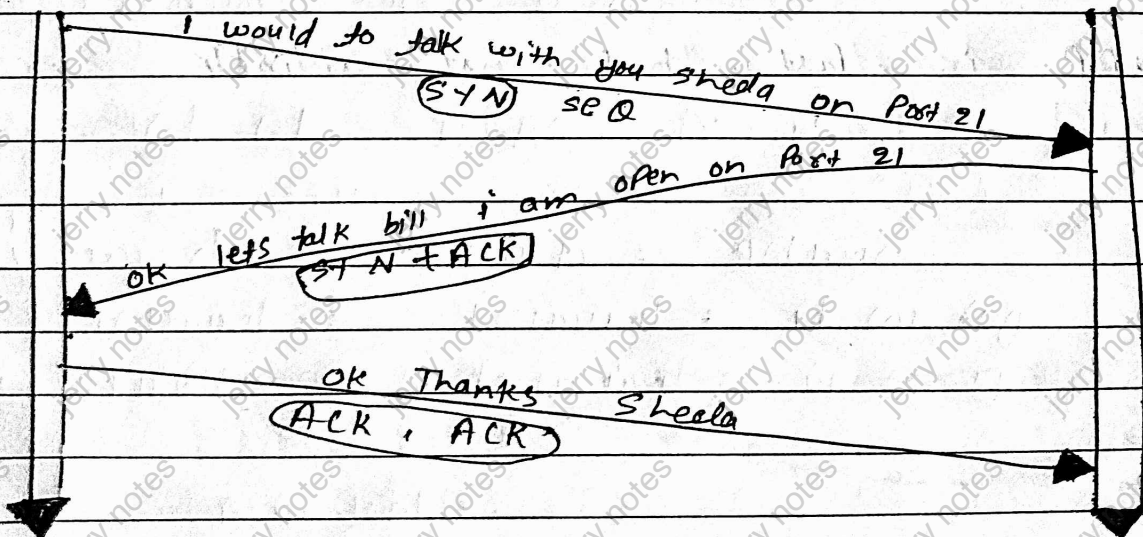 I would to talk with you sheda on Port 21
SYN SEQ
ok lets talk bill i am open on Port 21
SYN + ACK
OK Thanks Sheela
ACK, ACK
jerry notes